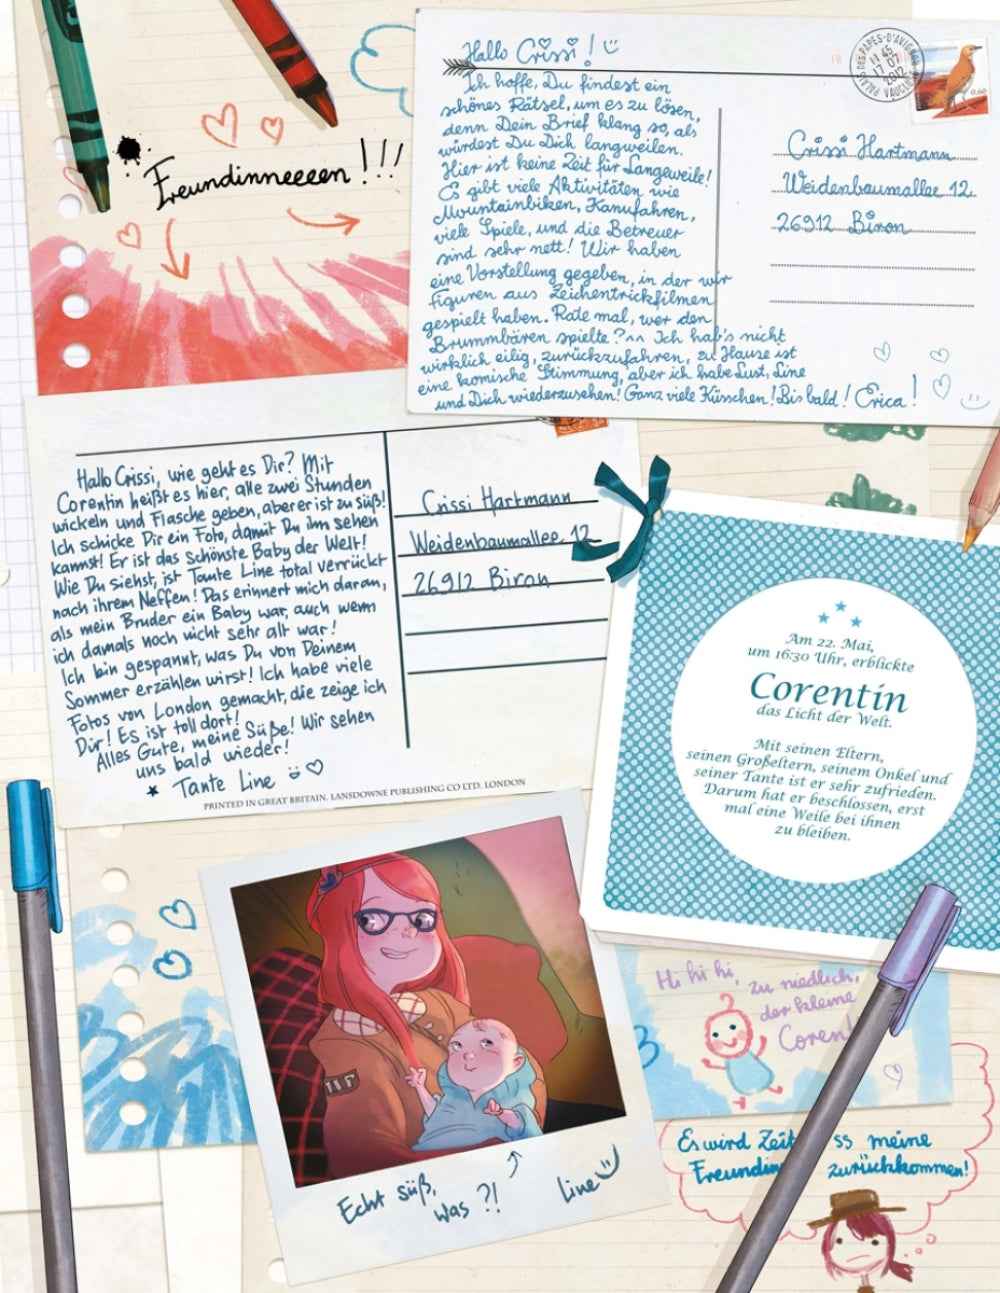 Freundinneeeen!!!
Hallo Crissi!
Ich hoffe, Du findest ein
schönes Rätsel, um es zu lösen,
denn Dein Brief klang so, als
würdest Du Dich langweilen.
Hier ist keine Zeit für Langeweile!
Es gibt viele Aktivitäten wie
Mountainbiken, Kanufahren,
viele Spiele, und die Betreuer
sind sehr nett! Wir haben
eine Vorstellung gegeben, in der wir
Figuren aus Zeichentrickfilmen
gespielt haben. Rate mal, wer den
Brummbären spielte?^^ Ich hab's nicht
wirklich eilig, zurückzufahren, zu Hause ist
eine komische Stimmung, aber ich habe Lust, Line
und Dich wiederzusehen! Ganz viele Küsschen! Bis bald! Erica!
PALAIS-DES-PAPES-D'AVIGNON
11 45
17 07
2012
VAUCLUSE
0,60
Crissi Hartmann
Weidenbaumallee 12
26912 Biron
Hallo Crissi, wie geht es Dir? Mit
Corentin heißt es hier, alle zwei Stunden
wickeln und Flasche geben, aber er ist zu süß!
Ich schicke Dir ein Foto, damit Du ihn sehen
kannst! Er ist das schönste Baby der Welt!
Wie Du siehst, ist Tante Line total verrückt
nach ihrem Neffen! Das erinnert mich daran,
als mein Bruder ein Baby war, auch wenn
ich damals noch nicht sehr alt war!
Ich bin gespannt, was Du von Deinem
Sommer erzählen wirst! Ich habe viele
Fotos von London gemacht, die zeige ich
Dir! Es ist toll dort!
Alles Gute, meine Süße! Wir sehen
uns bald wieder!
Tante Line
PRINTED IN GREAT BRITAIN, LANSDOWNE PUBLISHING CO LTD, LONDON
Crissi Hartmann
Weidenbaumallee 12
26912 Biron
Am 22. Mai,
um 16:30 Uhr, erblickte
Corentin
das Licht der Welt.
Mit seinen Eltern,
seinen Großeltern, seinem Onkel und
seiner Tante ist er sehr zufrieden.
Darum hat er beschlossen, erst
mal eine Weile bei ihnen
zu bleiben.
Echt süß,
was?!
Line
Hi hi hi,
zu niedlich,
der kleine
Coren
Es wird Zeit ss meine
Freundin zurückkommen!